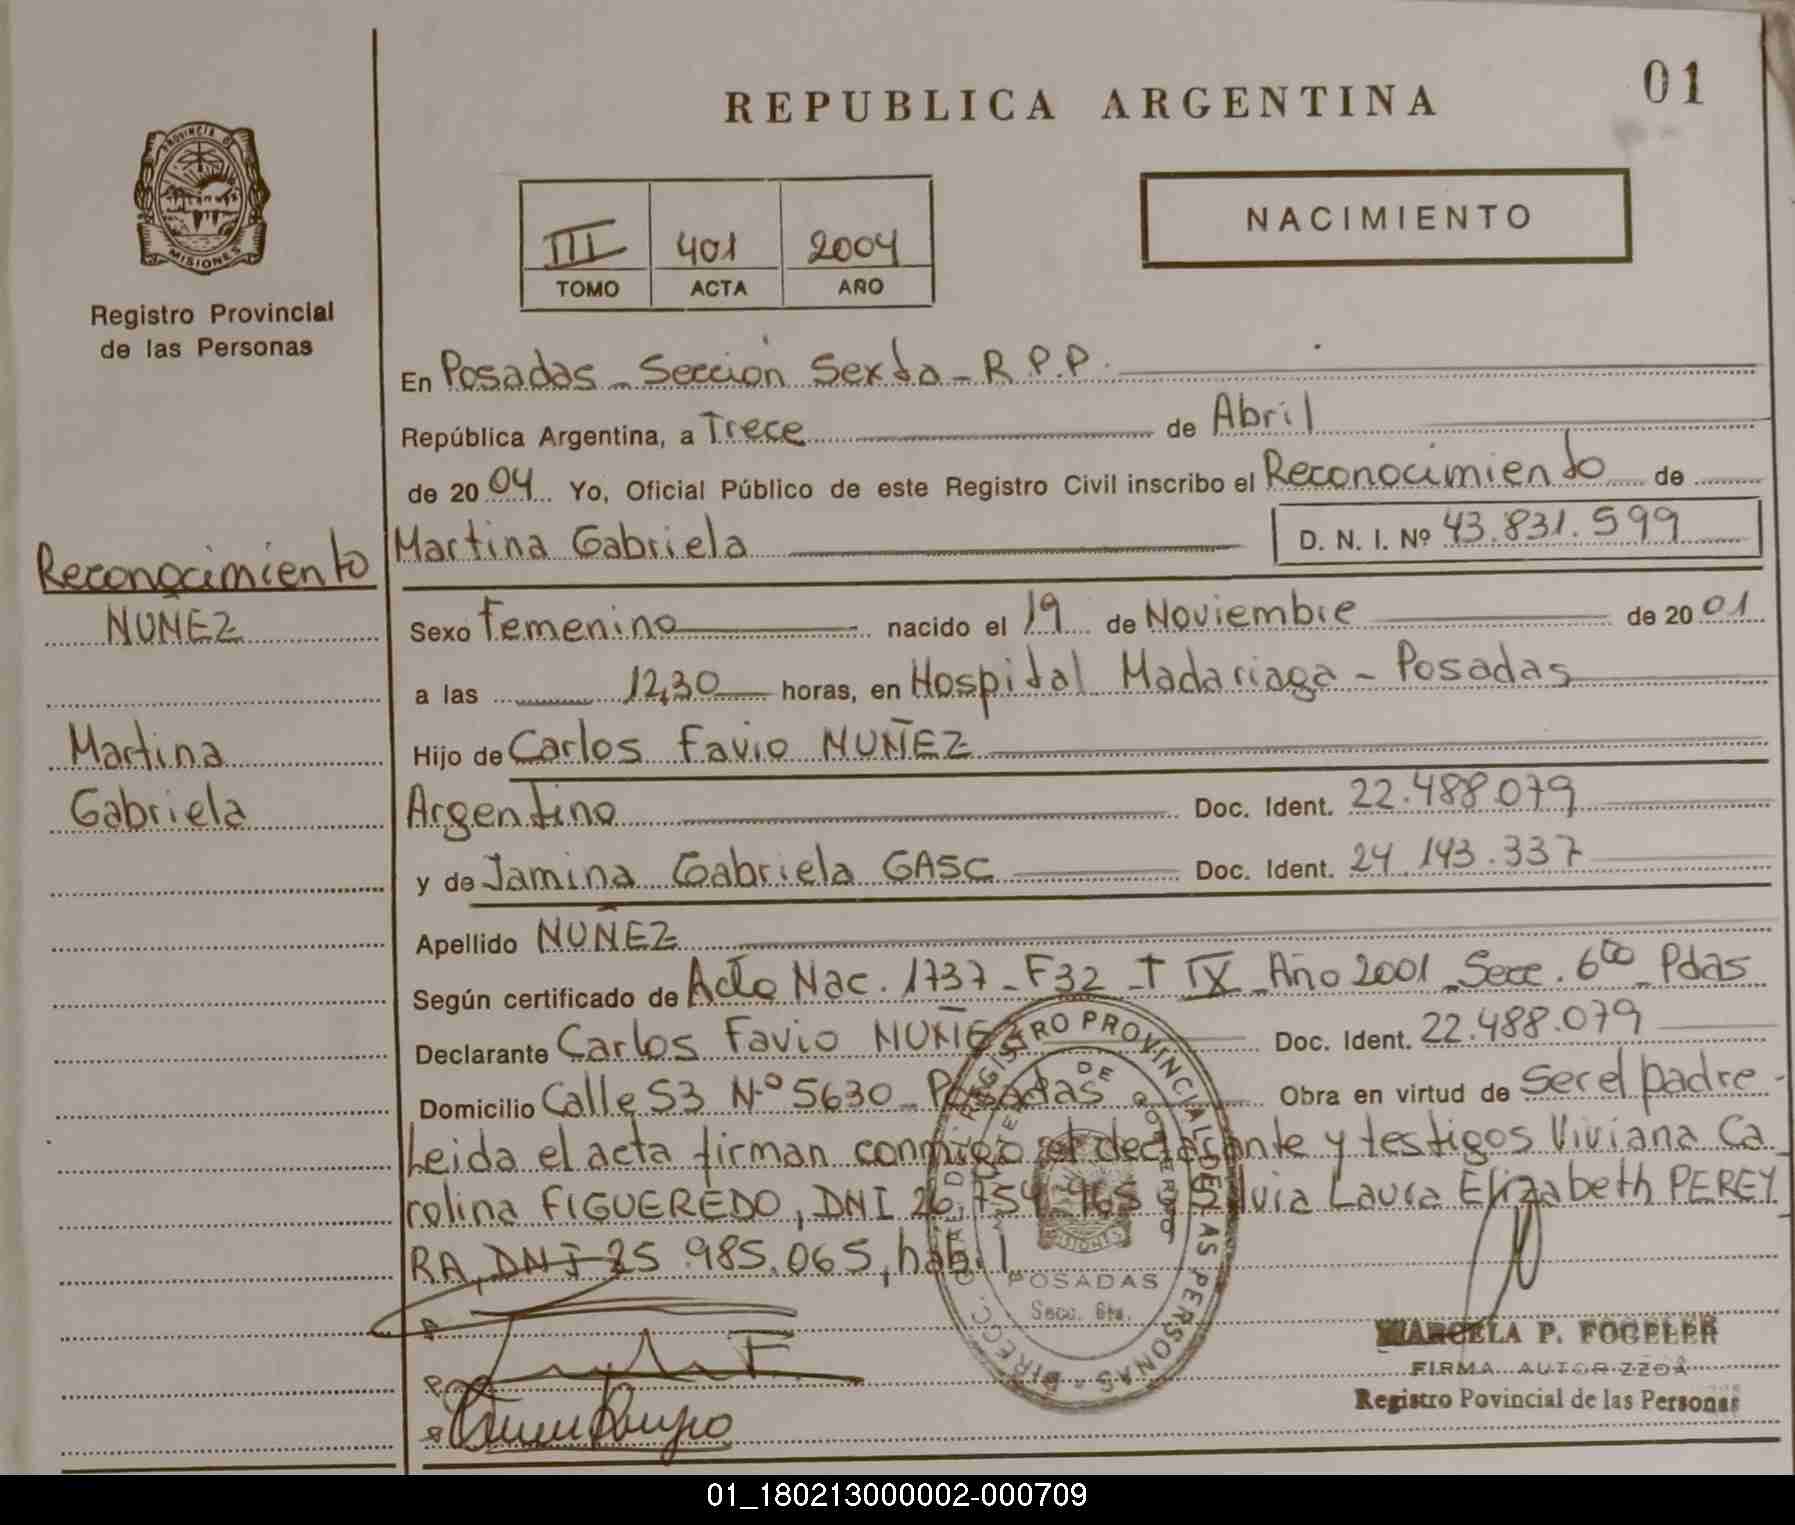 REPUBLICA ARGENTINA
01
PROVINCIA DE
MISIONES
Registro Provincial
de las Personas
III 401 2004
TOMO ACTA AÑO
NACIMIENTO
En Posadas - Sección Sexta - R.P.P.
República Argentina, a Trece de Abril
de 2004 Yo, Oficial Público de este Registro Civil inscribo el Reconocimiento de
Martina Gabriela D. N. I. Nº 43.831.599
Reconocimiento
NUÑEZ
Martina
Gabriela
Sexo Femenino nacido el 19 de Noviembre de 2001
a las 12,30 horas, en Hospital Madariaga - Posadas
Hijo de Carlos Favio NUÑEZ
Argentino Doc. Ident. 22.488.079
y de Jamina Gabriela GASC Doc. Ident. 24.143.337
Apellido NUÑEZ
Según certificado de Acta Nac. 1737 - F32 - T IX - Año 2001 - Secc. 6ta - Pdas
Declarante Carlos Favio NUÑEZ Doc. Ident. 22.488.079
Domicilio Calle 53 Nº 5630 - Posadas Obra en virtud de ser el padre -
Leida el acta firman conmigo el declarante y testigos Viviana Ca
rolina FIGUEREDO, DNI 26.754.965 y Silvia Laura Elizabeth PEREY
RA, DNI 25.985.065, hábil
DIRECC. GRAL. D. REGISTRO PROVINCIAL DE LAS PERSONAS
MISIONES
POSADAS
Secc. 6ta.
MARCELA P. FOGELER
FIRMA AUTORIZZDA
Registro Povincial de las Personas
01_180213000002-000709